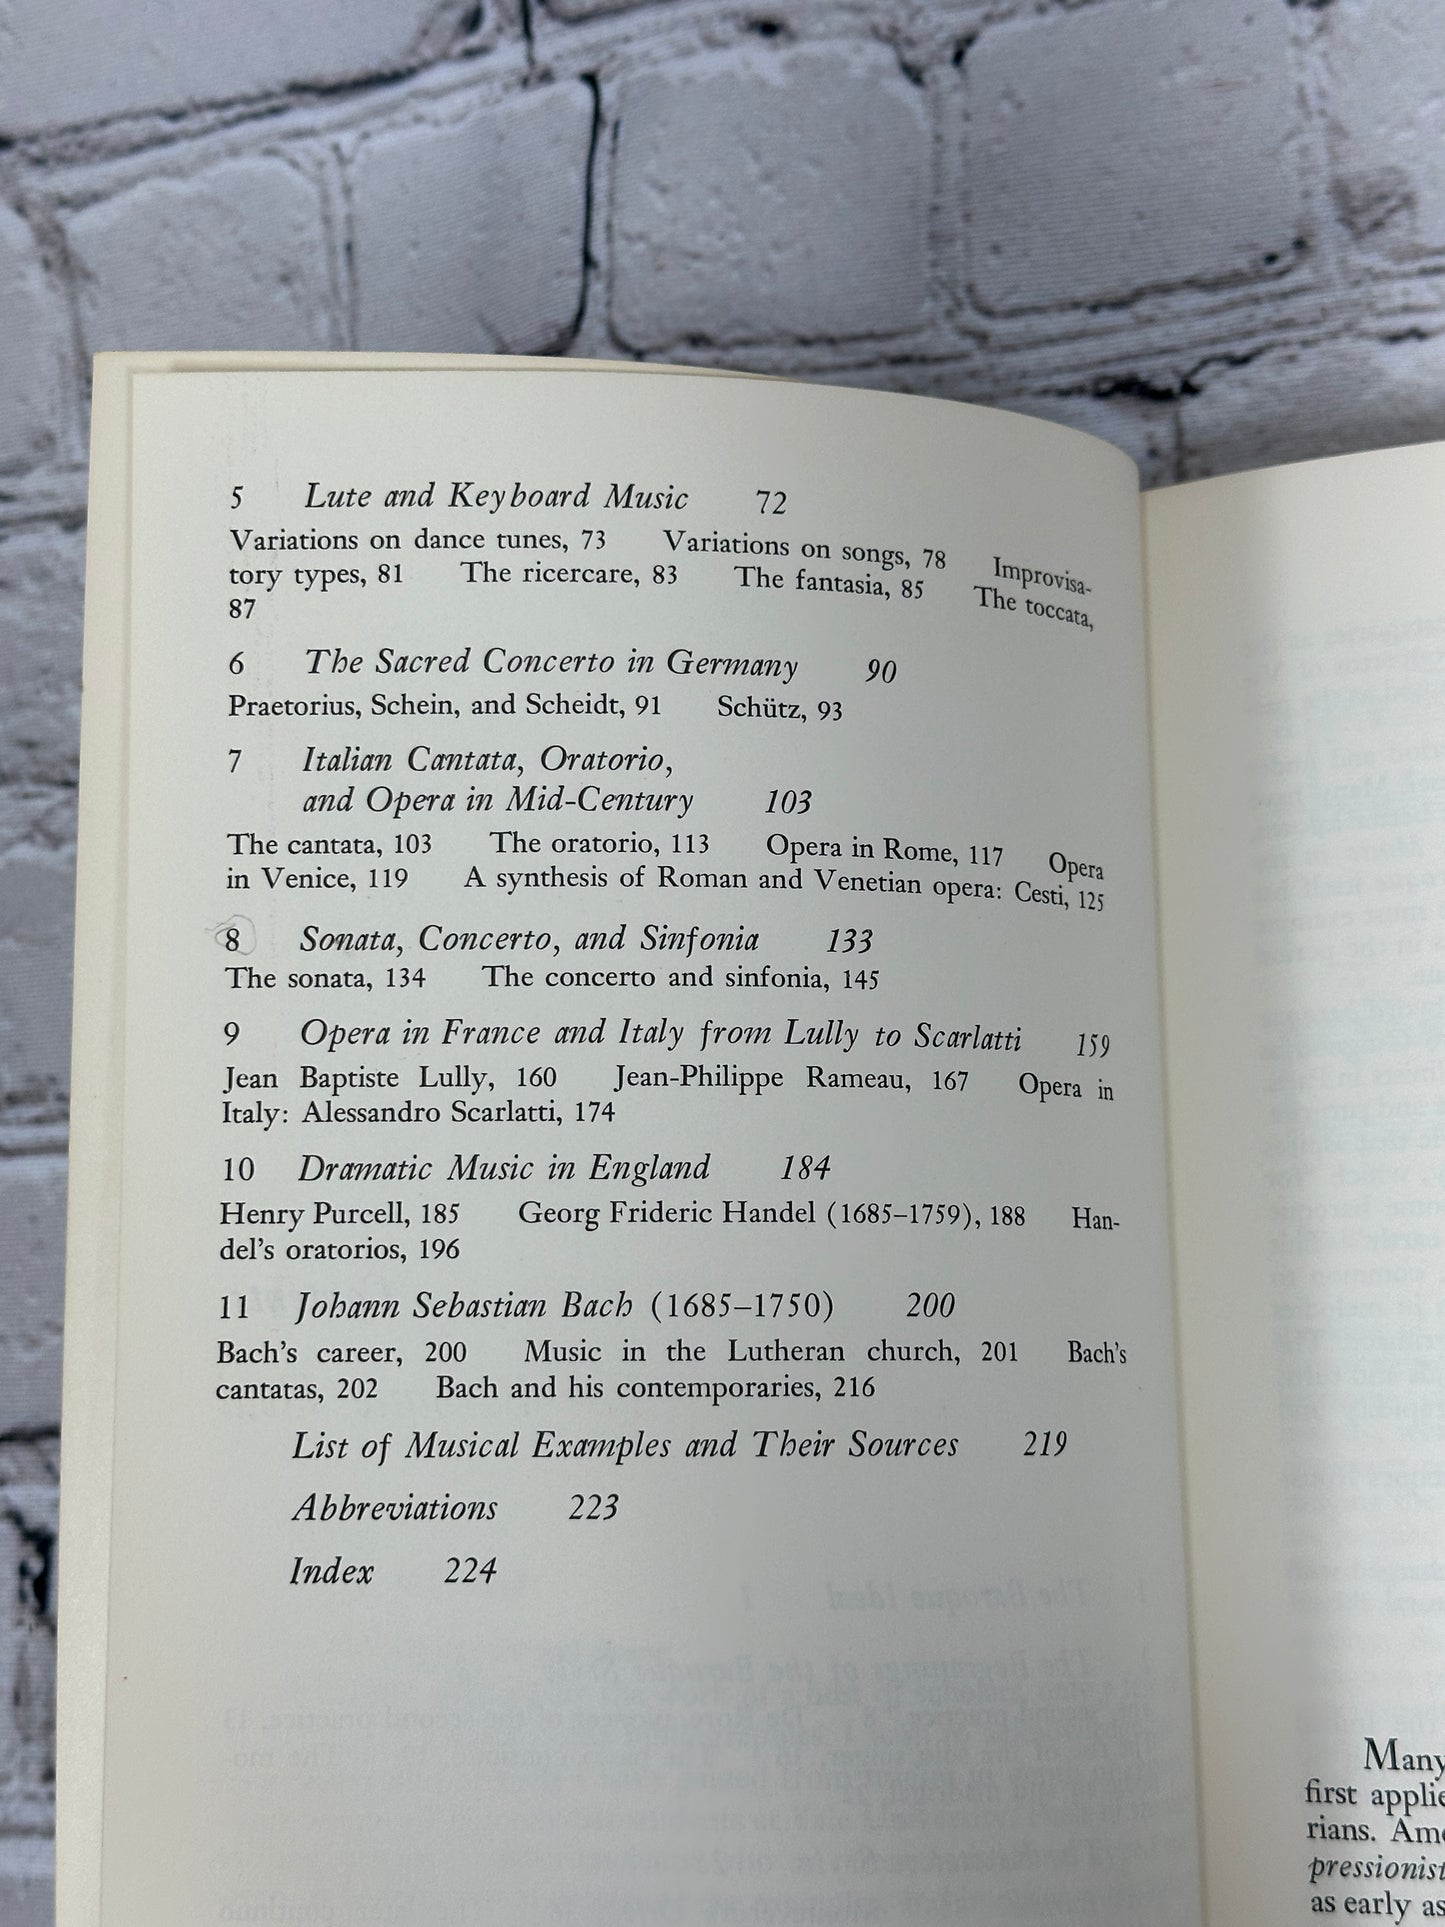 5 Lute and Keyboard Music 72
Variations on dance tunes, 73 Variations on songs, 78 Improvisa-
tory types, 81 The ricercare, 83 The fantasia, 85 The toccata,
87
6 The Sacred Concerto in Germany 90
Praetorius, Schein, and Scheidt, 91 Schütz, 93
7 Italian Cantata, Oratorio,
and Opera in Mid-Century 103
The cantata, 103 The oratorio, 113 Opera in Rome, 117 Opera
in Venice, 119 A synthesis of Roman and Venetian opera: Cesti, 125
8 Sonata, Concerto, and Sinfonia 133
The sonata, 134 The concerto and sinfonia, 145
9 Opera in France and Italy from Lully to Scarlatti 159
Jean Baptiste Lully, 160 Jean-Philippe Rameau, 167 Opera in
Italy: Alessandro Scarlatti, 174
10 Dramatic Music in England 184
Henry Purcell, 185 Georg Frideric Handel (1685–1759), 188 Han-
del's oratorios, 196
11 Johann Sebastian Bach (1685–1750) 200
Bach's career, 200 Music in the Lutheran church, 201 Bach's
cantatas, 202 Bach and his contemporaries, 216
List of Musical Examples and Their Sources 219
Abbreviations 223
Index 224
Many
first applie
rians. Ame
pressionist
as early as